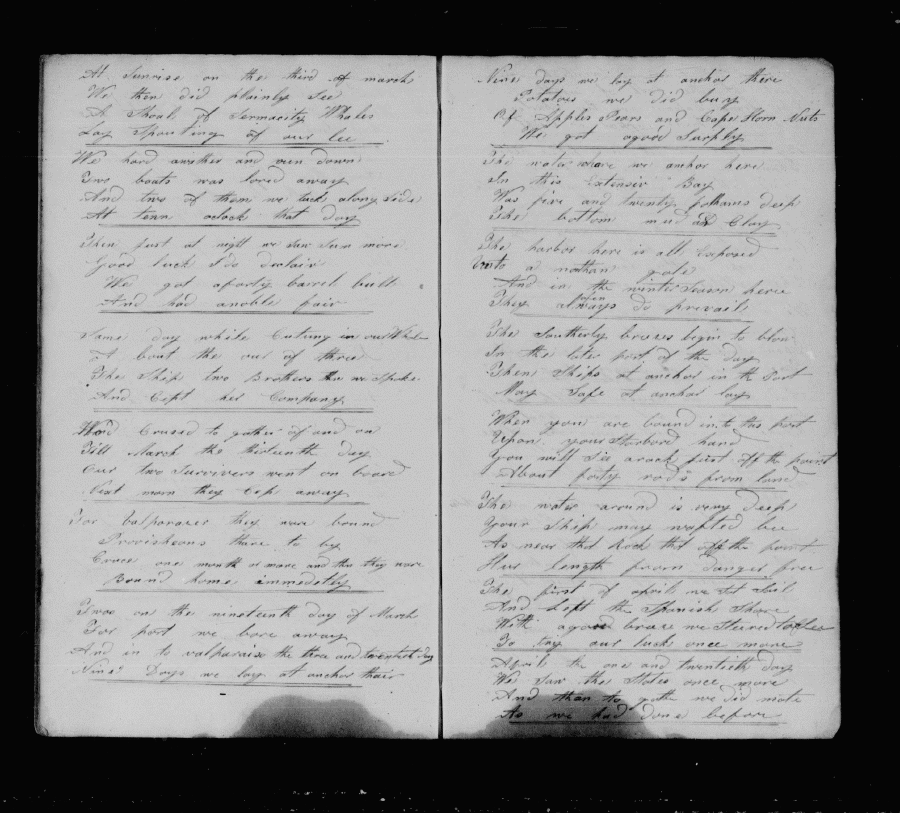 At Sunrise on the third of march
We then did plainly See
A Shoal of Sermacity Whales
Lay Spouting of our lee
We hard another and run down
Two boats was lored away
And two of them we tuck along Side
At tenn oclock that day
Then just at night we saw Sum more
Good luck I do declair
We got aforty barrel bull
And had anoble fair
Same day while Cutting in our
A bout the our of three
The Ship two Brothers then we Spoke
And Cept her Company
Crused to gather of and on
Till March the thirteenth day
Our two Survivers went on board
Next morn they Cep away
For Valparazes they ware bound
Provisheons thare to by
Cruce one month or more and then they ware
Bound home immedetly
Twas on the nineteenth day of March
For port we bore away
And in to valparaiso the three and twentieth day
Nine Days we lay at anchor thair
Nine days we lay at anchor there
Potatoes we did buy
Of Apples Pears and Cape Horn Nuts
We got agood Surply
The water whare we anchor here
In this Extensiv Bay
Was five and twenty fathams deep
The bottom mud and Clay
The harbor here is all Exposed
Unto a northan gale
And in the winter Season here
They often do prevail
The Southerly brezes begin to blow
In the later part of the day
Then Ships at anchor in the Port
May Safe at anchor lay
When your are bound into this port
Upon your Starbord hand
You will See arock just off the point
About forty rod's from land
The water around is very deep
Your Ship may wafted bee
As near that Rock that off the point
Her length from danger free
The first of april we Set Sail
And left the Spanish Shore
With agood breze we Steered
To try our luck once more
April the one and twentieth day
We Saw the States once more
And than to gether we did mate
As we had done before